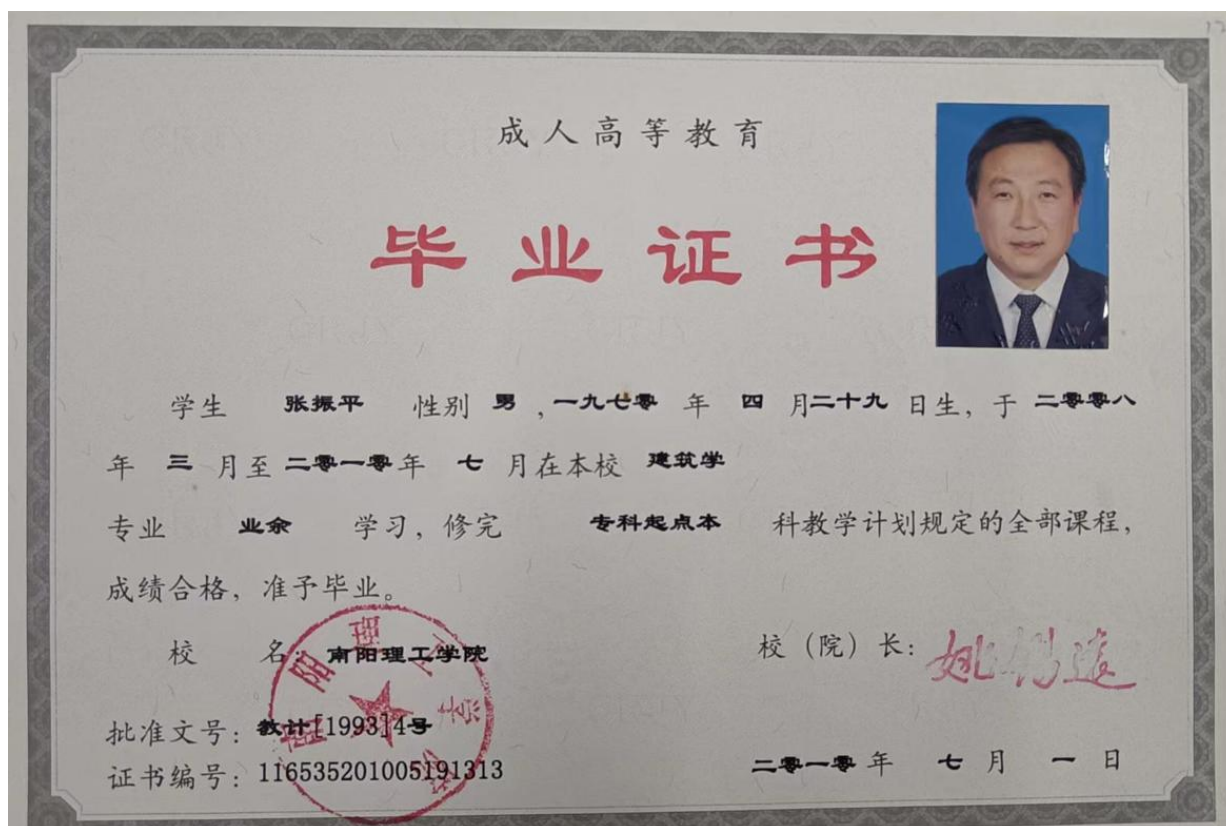 成人高等教育
毕业证书
学生 张振平 性别 男 ,一九七零 年 四 月二十九 日生, 于 二零零八
年 三 月至 二零一零 年 七 月在本校 建筑学
专业 业余 学习, 修完 专科起点本 科教学计划规定的全部课程,
成绩合格, 准予毕业。
校 名: 南阳理工学院
校（院）长:
批准文号: 教计[1993]4号
证书编号: 116535201005191313
二零一零 年 七 月 一 日
南阳理工学院